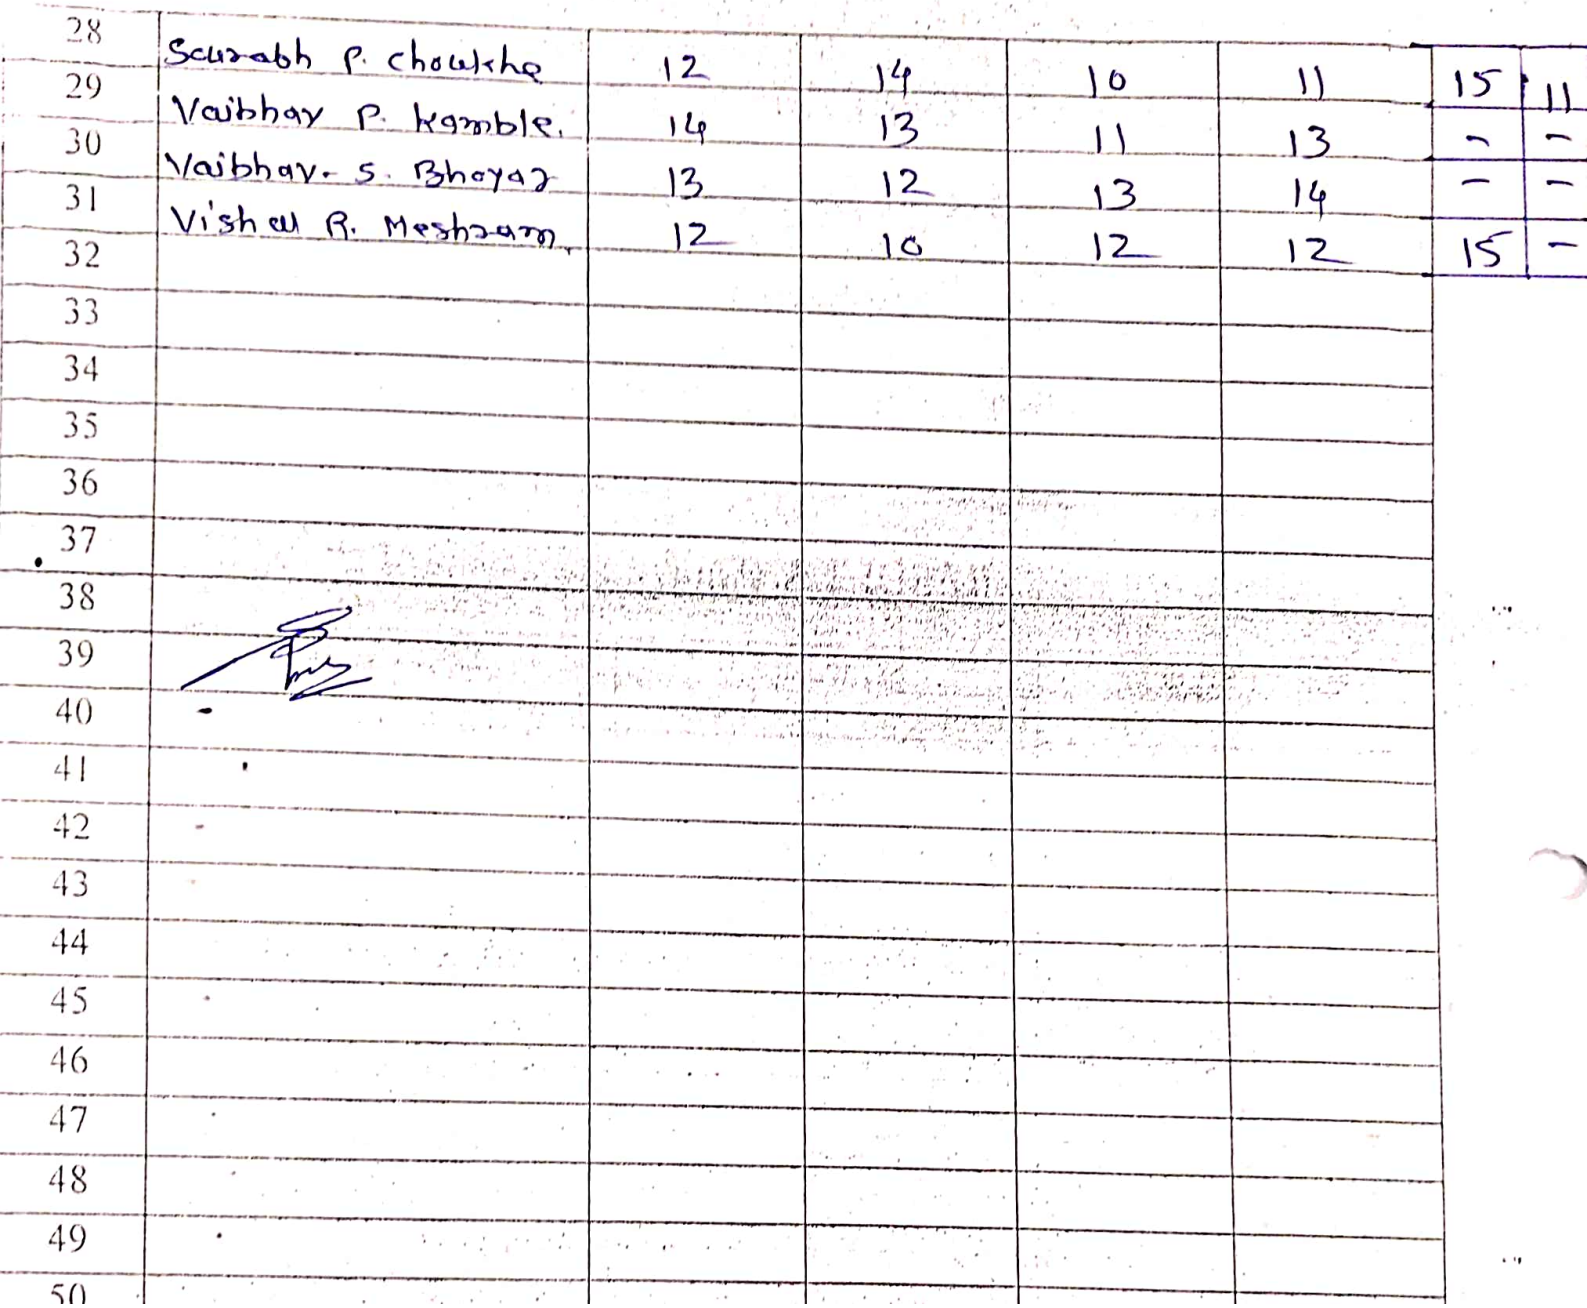 28 Saurabh P. Choukhe 12 14 10 11 15 11
29 Vaibhav P. Kamble. 14 13 11 13 - -
30 Vaibhav. S. Bhoyar 13 12 13 14 - -
31 Vishal R. Meshram. 12 10 12 12 15 -
32
33
34
35
36
37
38
39
40
41
42
43
44
45
46
47
48
49
50